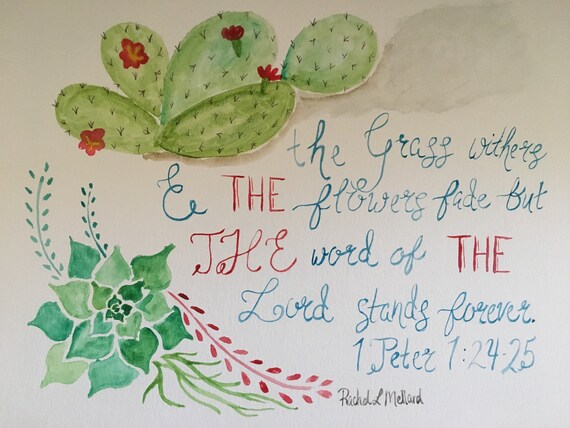 the Grass withers
& THE flowers fade but
THE word of THE
Lord stands forever.
1 Peter 1:24-25
Rachel L Mellard